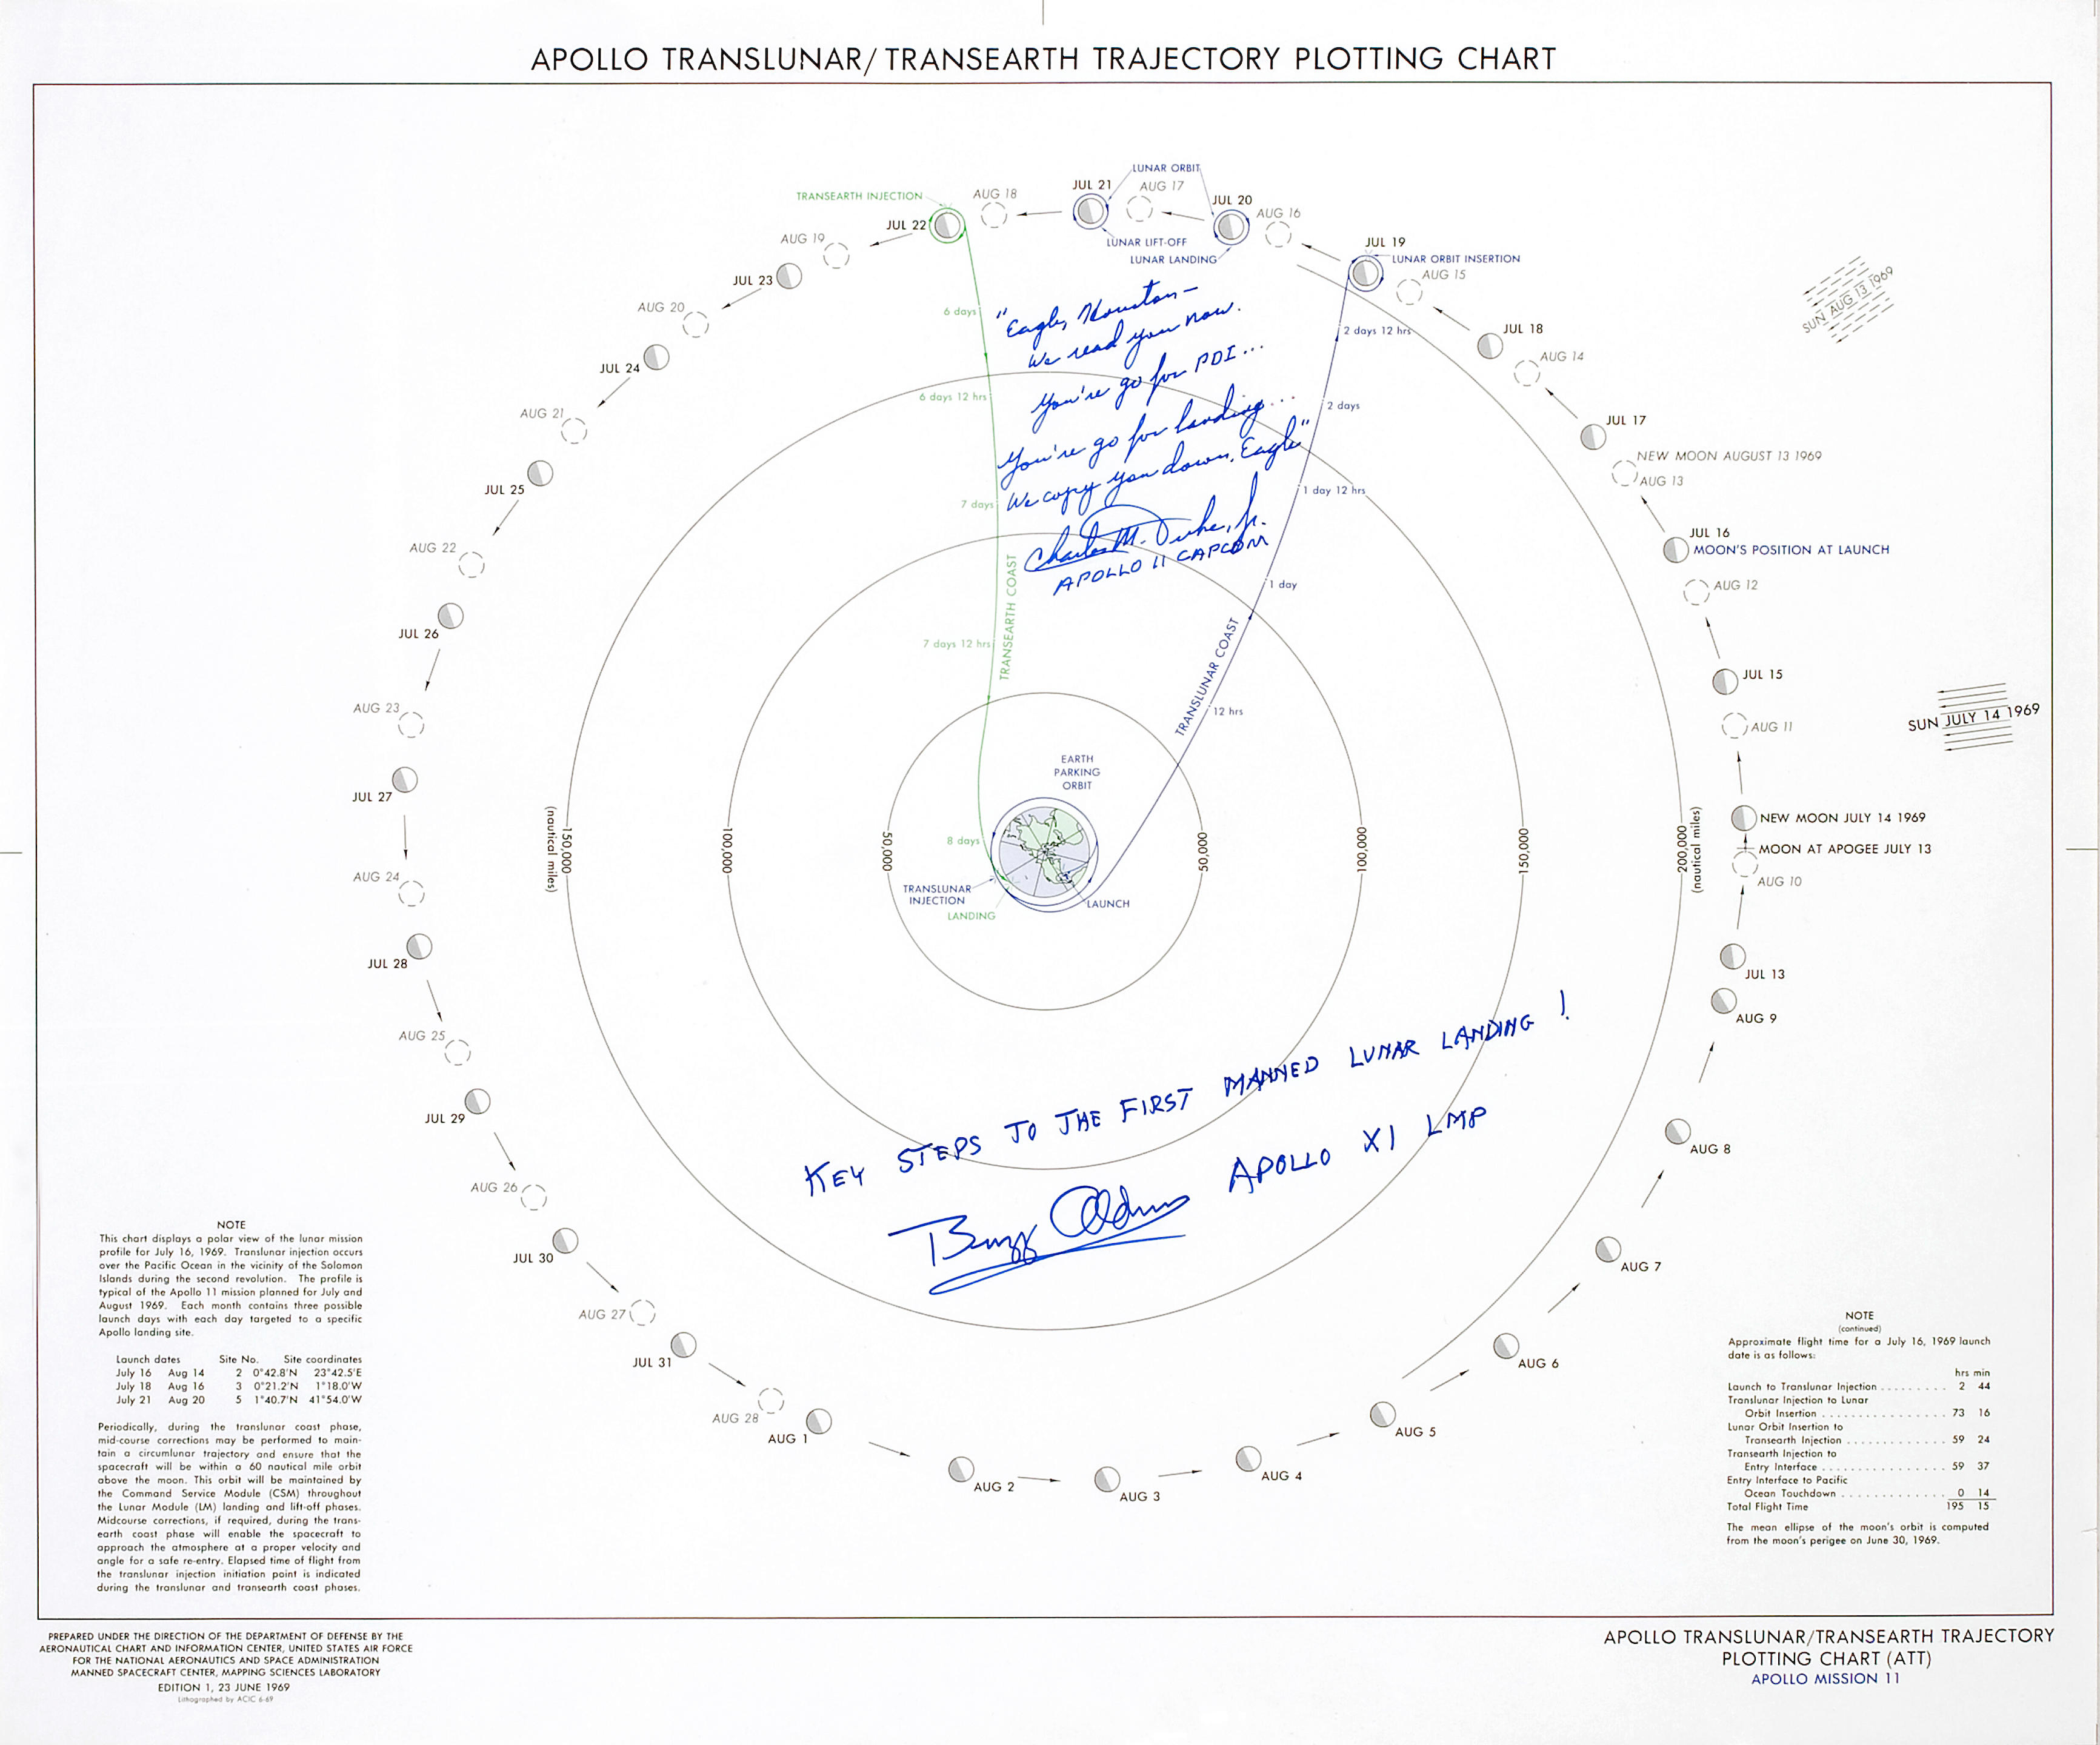 APOLLO TRANSLUNAR/TRANSEARTH TRAJECTORY PLOTTING CHART
LUNAR ORBIT
JUL 21
AUG 17
AUG 18
TRANSEARTH INJECTION
JUL 22
JUL 20
AUG 16
AUG 19
JUL 19
LUNAR LIFT-OFF
LUNAR LANDING
LUNAR ORBIT INSERTION
AUG 15
JUL 23
SUN AUG 13 1969
AUG 20
6 days
"Eagle, Houston—
We read you now.
You're go for PDI...
You're go for landing...
We copy you down, Eagle"
Charles M. Duke, Jr.
APOLLO 11 CAPCOM
2 days 12 hrs
JUL 18
AUG 14
JUL 24
6 days 12 hrs
2 days
AUG 21
JUL 17
NEW MOON AUGUST 13 1969
AUG 13
JUL 25
7 days
1 day 12 hrs
JUL 16
MOON'S POSITION AT LAUNCH
AUG 22
TRANSEARTH COAST
1 day
AUG 12
JUL 26
7 days 12 hrs
TRANSLUNAR COAST
JUL 15
AUG 23
12 hrs
SUN JULY 14 1969
AUG 11
EARTH
PARKING
ORBIT
JUL 27
NEW MOON JULY 14 1969
(nautical miles)
150,000
100,000
50,000
8 days
50,000
100,000
150,000
200,000
(nautical miles)
MOON AT APOGEE JULY 13
AUG 24
AUG 10
TRANSLUNAR
INJECTION
LANDING
LAUNCH
JUL 28
JUL 13
AUG 9
AUG 25
KEY STEPS TO THE FIRST MANNED LUNAR LANDING !
Buzz Aldrin APOLLO XI LMP
JUL 29
AUG 8
AUG 26
JUL 30
AUG 7
AUG 27
JUL 31
AUG 6
AUG 28
AUG 1
AUG 5
AUG 2
AUG 3
AUG 4
NOTE
This chart displays a polar view of the lunar mission
profile for July 16, 1969. Translunar injection occurs
over the Pacific Ocean in the vicinity of the Solomon
Islands during the second revolution. The profile is
typical of the Apollo 11 mission planned for July and
August 1969. Each month contains three possible
launch days with each day targeted to a specific
Apollo landing site.
Launch dates Site No. Site coordinates
July 16 Aug 14 2 0°42.8'N 23°42.5'E
July 18 Aug 16 3 0°21.2'N 1°18.0'W
July 21 Aug 20 5 1°40.7'N 41°54.0'W
Periodically, during the translunar coast phase,
mid-course corrections may be performed to main-
tain a circumlunar trajectory and ensure that the
spacecraft will be within a 60 nautical mile orbit
above the moon. This orbit will be maintained by
the Command Service Module (CSM) throughout
the Lunar Module (LM) landing and lift-off phases.
Midcourse corrections, if required, during the trans-
earth coast phase will enable the spacecraft to
approach the atmosphere at a proper velocity and
angle for a safe re-entry. Elapsed time of flight from
the translunar injection initiation point is indicated
during the translunar and transearth coast phases.
NOTE
(continued)
Approximate flight time for a July 16, 1969 launch
date is as follows:
hrs min
Launch to Translunar Injection ......... 2 44
Translunar Injection to Lunar
Orbit Insertion ................ 73 16
Lunar Orbit Insertion to
Transearth Injection ............ 59 24
Transearth Injection to
Entry Interface ................ 59 37
Entry Interface to Pacific
Ocean Touchdown ............. 0 14
Total Flight Time 195 15
The mean ellipse of the moon's orbit is computed
from the moon's perigee on June 30, 1969.
PREPARED UNDER THE DIRECTION OF THE DEPARTMENT OF DEFENSE BY THE
AERONAUTICAL CHART AND INFORMATION CENTER, UNITED STATES AIR FORCE
FOR THE NATIONAL AERONAUTICS AND SPACE ADMINISTRATION
MANNED SPACECRAFT CENTER, MAPPING SCIENCES LABORATORY
EDITION 1, 23 JUNE 1969
Lithographed by ACIC 6-69
APOLLO TRANSLUNAR/TRANSEARTH TRAJECTORY
PLOTTING CHART (ATT)
APOLLO MISSION 11